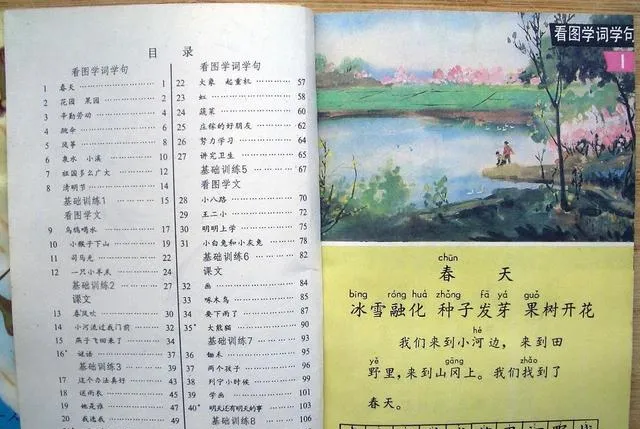 目 录
看图学词学句
1 春天 1
2 花园 果园 2
3 辛勤劳动 4
4 跳伞 6
5 风筝 8
6 泉水 小溪 10
7 祖国多么广大 12
8 清明节 14
基础训练1 15
看图学文
9 乌鸦喝水 17
10 小猴子下山 19
11 司马光 22
12 一只小羊羔 24
基础训练2 27
课文
13 春风吹 31
14 小河流过我门前 32
15 燕子飞回来了 34
16* 谜语 37
基础训练3 39
17 这个办法真好 43
18 送雨衣 45
19 她是谁 47
20 我选我 49
22 大象 起重机 57
23 虹 58
24 蔬菜 60
25 庄稼的好朋友 62
26 努力学习 64
27 讲究卫生 65
基础训练5 67
看图学文
28 小八路 70
29 王二小 72
30 明明上学 75
31 小白兔和小灰兔 78
基础训练6 82
课文
32 画 84
33 啄木鸟 85
34 要下雨了 87
35* 大熊猫 90
基础训练7 93
36 锄禾 95
37 两个孩子 96
38 列宁小时候 99
39 学画 101
40* 明天还有明天的事 103
基础训练8 106
看图学词学句
1
chūn
春 天
bīng róng huà zhǒng fā yá guǒ
冰雪融化 种子发芽 果树开花
hé
我们来到小河边，来到田
yě gāng zhǎo
野里，来到山冈上。我们找到了
春天。